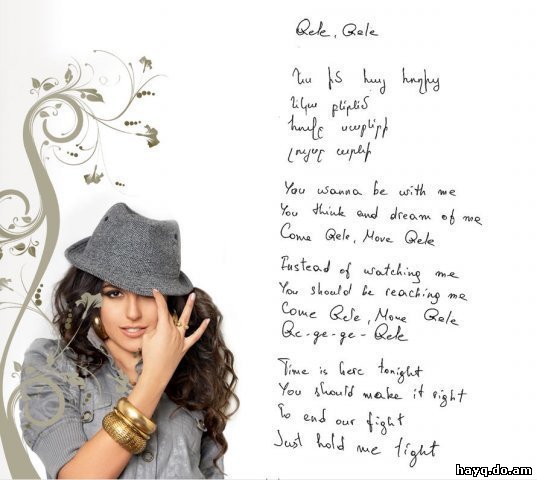 Qele, Qele
Ես իմ հայ հողից
Եկա բերեմ
հովը սարերի
լույսը արևի
You wanna be with me
You think and dream of me
Come Qele, Move Qele
Instead of watching me
You should be reaching me
Come Qele, Move Qele
Qe-qe-qe-Qele
Time is here tonight
You should make it right
To end our fight
Just hold me tight
hayq.do.am